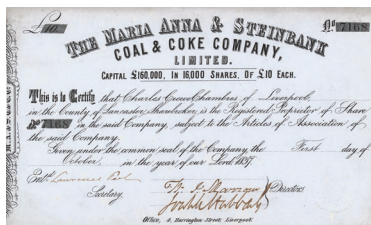 £10.
No. 7168
THE MARIA ANNA & STEINBANK
COAL & COKE COMPANY,
LIMITED.
CAPITAL £160,000, IN 16,000 SHARES, OF £10 EACH.
This is to Certify that Charles Crow Chambres of Liverpool,
in the County of Lancaster, Sharebroker, is the Registered Proprietor of Share
No. 7168 in the said Company, subject to the Articles of Association of
the said Company.
Given under the common seal of the Company the First day of
October, in the year of our Lord 1857
Entd. Lawrence
Secretary.
Directors
Office, 4, Harrington Street, Liverpool.